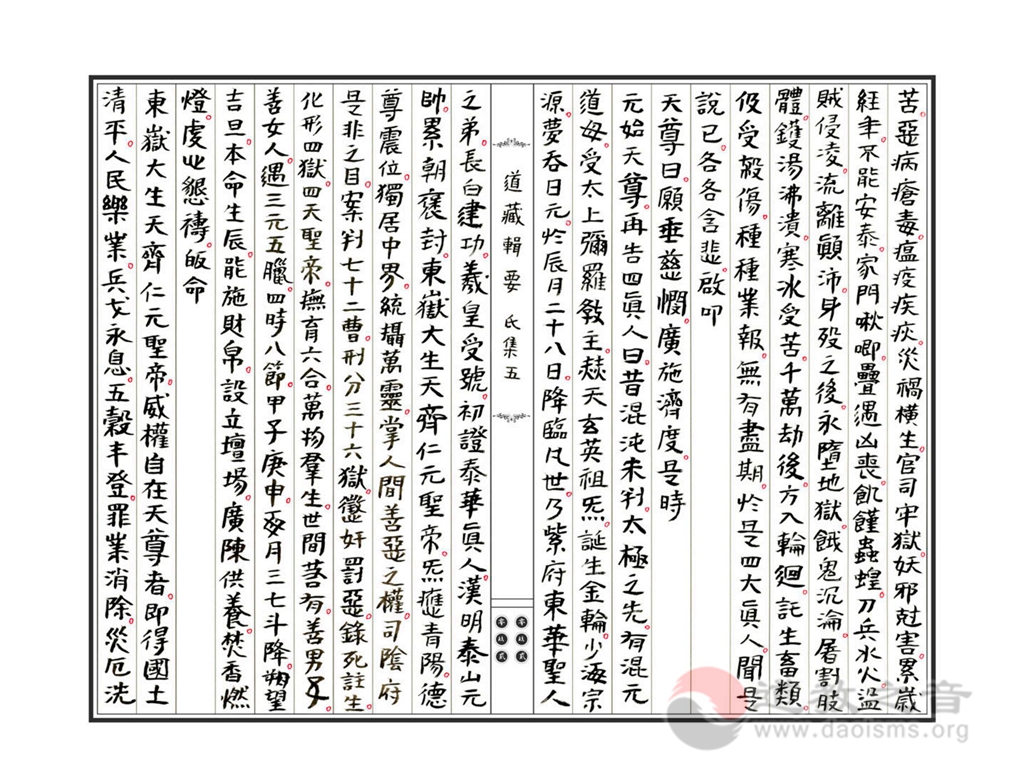 苦。惡病瘡毒。瘟疫疾疢。災禍橫生。官司牢獄。妖邪尅害。累歲
經年。不能安泰。家門啾唧。疊遇凶喪。飢饉蟲蝗。刀兵水火。盜
賊侵凌。流離顛沛。身殁之後。永墮地獄。餓鬼沉淪。屠割肢
體。鑊湯沸潰。寒冰受苦。千萬劫後。方入輪迴。託生畜類。
伋受殺傷。種種業報。無有盡期。於是四大真人。聞是
說已。各各含悲。啟叩
天尊曰。願垂慈憫。廣施濟度。是時
元始天尊。再告四真人曰。昔混沌未判。太極之先。有混元
道母。受太上彌羅敎主。赦天玄英祖炁。誕生金輪。少海宗
源。夢吞日元。於辰月二十八日。降臨凡世。乃紫府東華聖人
道藏輯要 氐集五
之弟。長白建功。羲皇受號。初證泰華真人。漢明泰山元
帥。累朝褒封。東嶽大生天齊仁元聖帝。炁應青陽。德
尊震位。獨居中界。統攝萬靈。掌人間善惡之權。司陰府
是非之目。案判七十二曹。刑分三十六獄。懲奸罰惡。錄死註生。
化形四獄。四天聖帝。撫育六合。萬物羣生。世間若有。善男子
善女人。遇三元五臘。四時八節。甲子庚申。每月三七斗降。朔望
吉旦。本命生辰。能施財帛。設立壇場。廣陳供養。焚香燃
燈。虔心懇禱。皈命
東嶽大生天齊仁元聖帝。威權自在天尊者。即得國土
清平。人民樂業。兵戈永息。五穀丰登。罪業消除。災厄洗
道教之音
www.daoisms.org